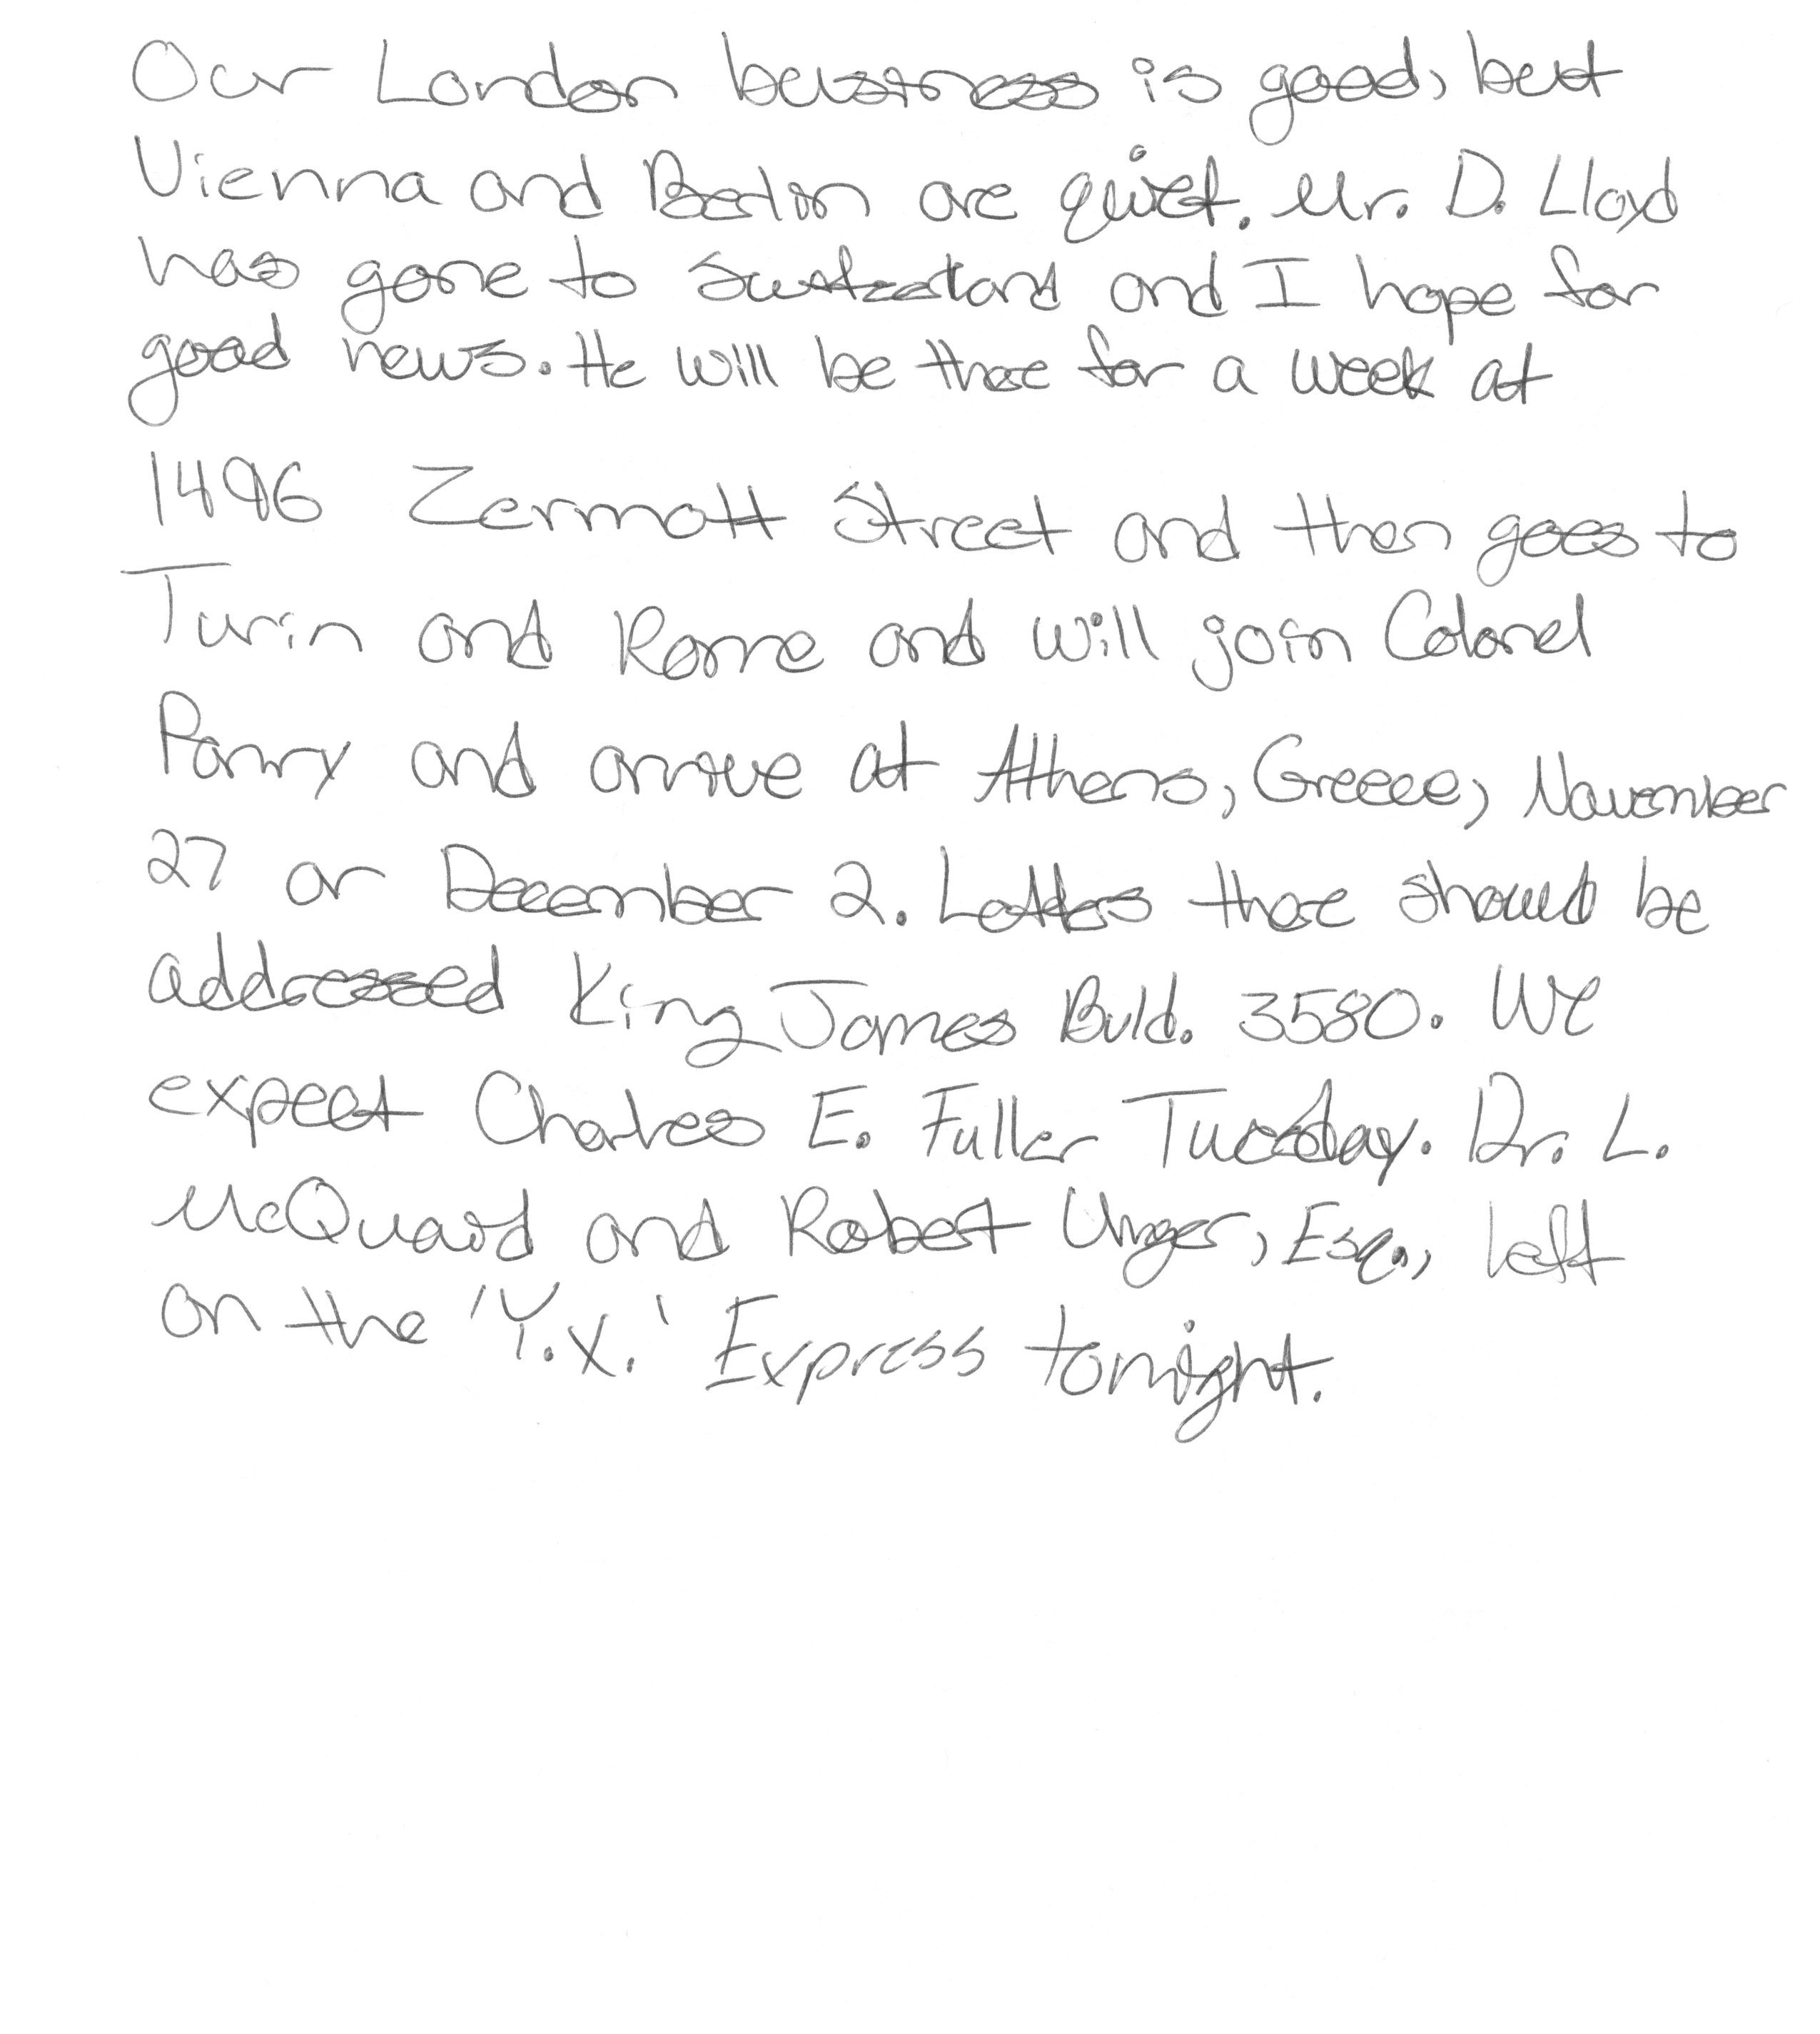 Our London business is good, but
Vienna and Berlin are quiet. Mr. D. Lloyd
has gone to Switzerland and I hope for
good news. He will be there for a week at
1496 Zermott Street and then goes to
Turin and Rome and will join Colonel
Parry and arrive at Athens, Greece, November
27 or December 2. Letters there should be
addressed King James Bvld. 3580. We
expect Charles E. Fuller Tuesday. Dr. L.
McQuaid and Robert Unger, Esq., left
on the 'Y.X.' Express tonight.